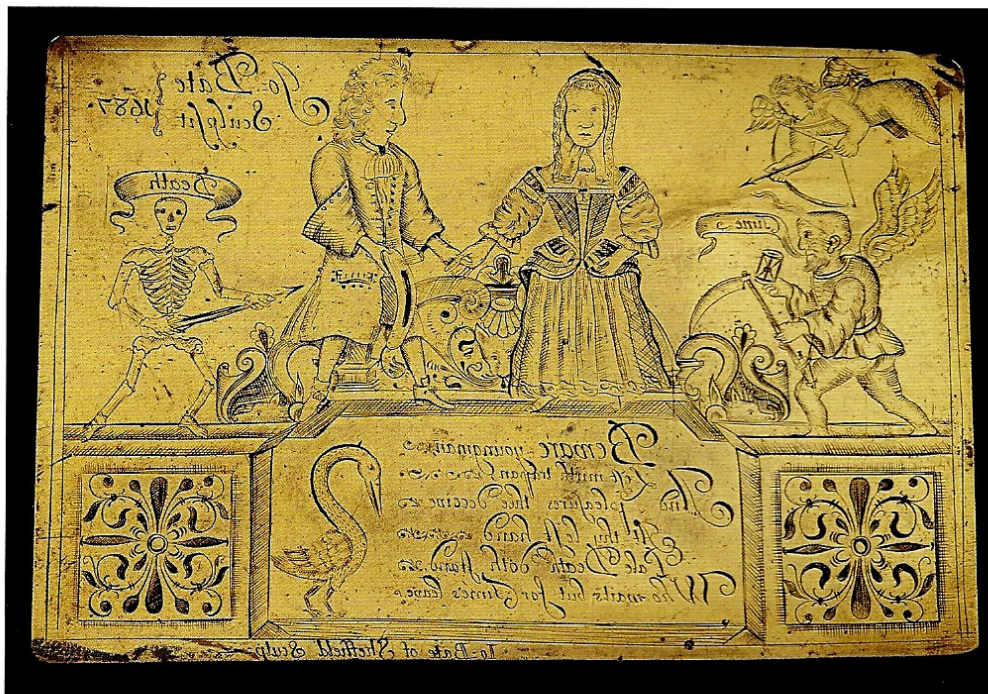 Jo= Bate
Sculpſit
1687.
Death
Time
Beware youngman
Leſt mirth trapan
And pleaſures thee deceive
At thy left hand
Pale Death doth ſtand
Who waits but for Times leave
Jo= Bate of Sheffield Sculp